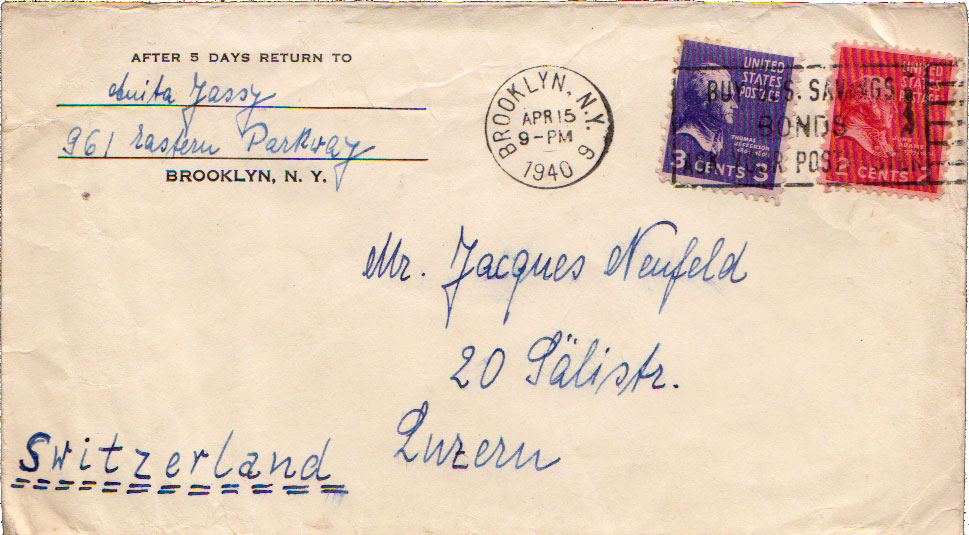 AFTER 5 DAYS RETURN TO
Anita Jassy
961 Eastern Parkway
BROOKLYN, N. Y.
BROOKLYN, N.Y. 9
APR 15
9-PM
1940
BUY U.S. SAVINGS
BONDS
ASK YOUR POST
UNITED
STATES
POSTAGE
THOMAS
JEFFERSON
3 CENTS 3
UNITED
STATES
POSTAGE
ADAMS
2 CENTS 2
Mr. Jacques Neufeld
20 Sälistr.
Luzern
Switzerland